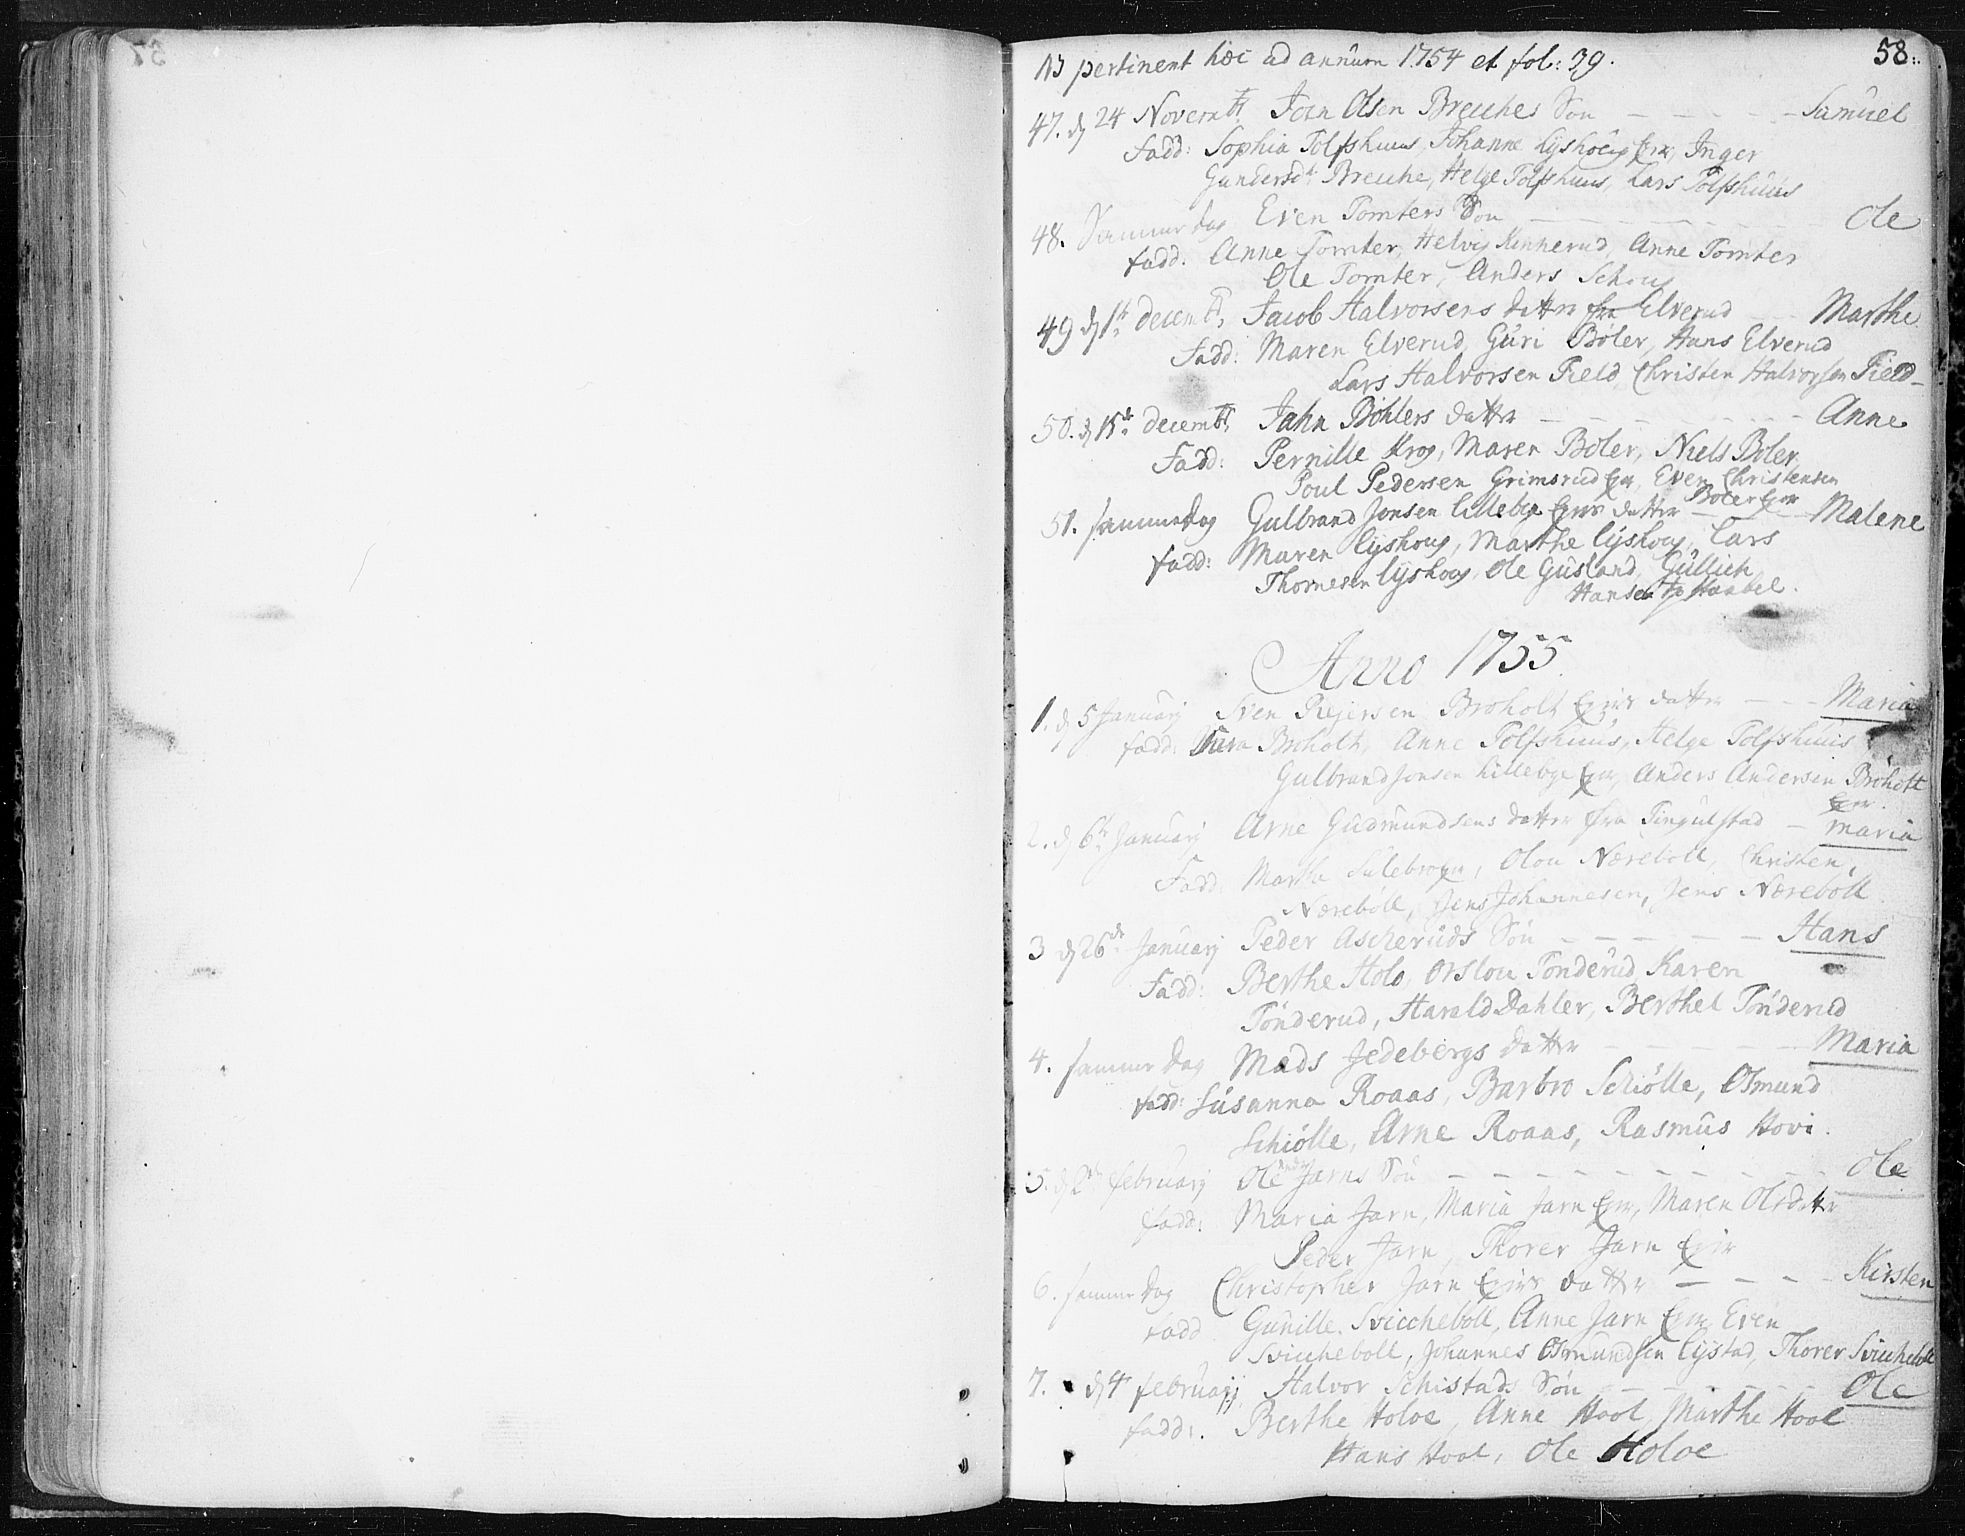 58.
NB pertinent hæc ad annum 1754 et fol: 39.
47. d 24 Novembr Joen Olsen Breches Son - - - - - Samuel
Fadd: Sophia Tolfshuus, Johanne Lyshoug Eyer, Inger
Gundersdt Breche, Helge Tolfshuus, Lars Tolfshuus
48. Samme dag Even Tomters Son - - - - - Ole
fadd. Anne Tomter, Helvig Kinnerud, Anne Tomter
Ole Tomter, Anders Schoug
49 d 1te Decembr, Jacob Halvorsens datter fra Elverud - - Marthe
Fadd: Maren Elverud, Guri Böler, Hans Elverud
Lars Halvorsen Field, Christen Halvorsen Field
50. d 15de decembr Jahn Böhlers datter - - - - - Anne
Fadd: Pernille Krog, Maren Böler, Niels Böler
Poul Pedersen Grimsrud Eyer, Even Christensen
Böler Eyer
51. samme dag Gulbrand Jonsen Lillebye Eyers datter - - - Malene
fadd: Maren Lyshoug, Marthe Lyshoug, Lars
Thomesen Lyshoug, Ole Gusland, Gullich
Hansen Haabel.
Anno 1755.
1. d 5 Januarj Sven Rejersen Broholt Eyers datter - - - Maria
fadd: Broholt, Anne Tolfshuus, Helge Tolfshuus
Gulbrand Jonsen Lillebye Eyer, Anders Andersen Broholt
Eyer.
2. d 6te Januarj Arne Gudmundsens datter fra Tingulstad - Maria
Fadd. Martha, Olou Næreböll, Christen
Næreböll, Jens Johannesen, Jens Næreböll
3 d 26de Januarj Peder Ascheruds Sön - - - - - Hans
Fadd: Berthe Holo, Orslou Tönderud Karen
Tönderud, Harald Dahler, Berthel Tönderud
4. samme dag Mads Jedebergs datter - - - - - Maria
fadd: Susanna Roaas, Barbro Schiölle, Osmund
Schiölle, Arne Roaas, Rasmus Hovi.
5. d 2de februarj Ole Jarns Sön - - - - - - - - Ole
fadd: Maria Jarn, Maria Jarn Eyer, Maren Olsdatter
Peder Jarn, Thorer Jarn Eyer
6. samme dag Christopher Jarn Eyers datter - - - - Kirsten
fadd Gunille Svicheböll, Anne Jarn Eyer, Even
Svicheböll, Johannes Osmundsen Lystad, Thorer Svicheböll
7. d 4 februarj Halvor Schistads Sön - - - - - Ole
fadd: Berthe Holoe, Anne Hool, Marthe Hool
Hans Hool, Ole Holoe